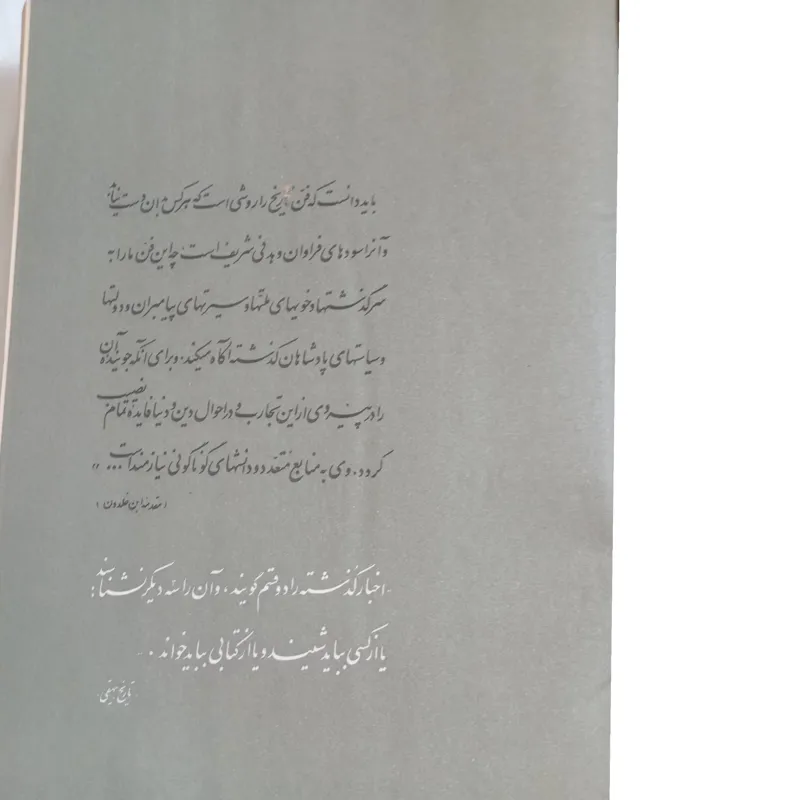 باید دانست که فن تاریخ را روشی است که هر کس بدان دست نیابد
و آنرا سودهای فراوان و هدفی شریف است، چه این فن ما را به
سرگذشتها و خویهای ملتها و سیرتهای پیامبران و دولتها
و سیاستهای پادشاهان گذشته آگاه میکند، و برای آنکه جوینده آن
را در پیروی از این تجارب و در احوال دین و دنیا فایده تمام نصیب
گردد. وی به منابع متعدد و دانشهای گوناگونی نیازمند است... »
(مقدمه ابن خلدون)
اخبار گذشته را دو قسم گویند، و آن را سه دیگر نشناسند:
یا از کسی بباید شنید و یا از کتابی بباید خواند.
تاریخ بیهقی